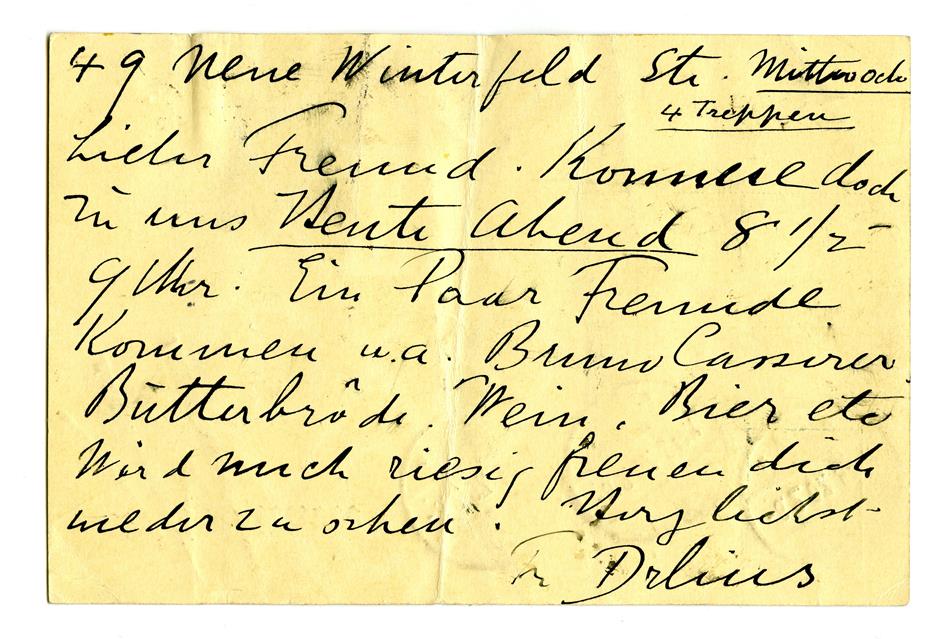 49 Neue Winterfeld Str. Mittwoch
4 Treppen
Lieber Freund. Komme doch
zu uns Heute Abend 8 1/2
9 Uhr. Ein Paar Freunde
Kommen u.a. Bruno Cassirer
Butterbröde. Wein, Bier etc
Wird mich riesig freuen dich
wieder zu sehen. Herzlichst
Fr Delius